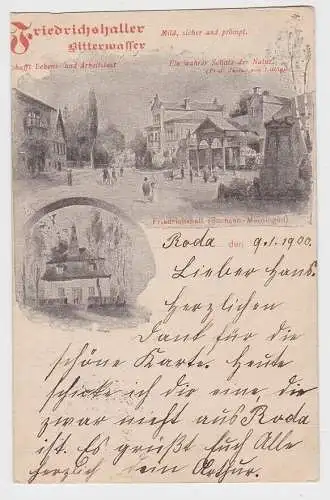 Friedrichshaller
Bitterwasser
Mild, sicher und prompt.
schafft Lebens- und Arbeitslust
Ein wahrer Schatz der Natur.
Friedrichshall (Sachsen-Meiningen)
Roda den 9.1.1900.
Lieber Hans.
Herzlichen
Dank für die
schöne Karte. Heute
schicke ich dir eine, die
zwar nicht aus Roda
ist. Es grüßt Euch Alle
herzlich dein Arthur.